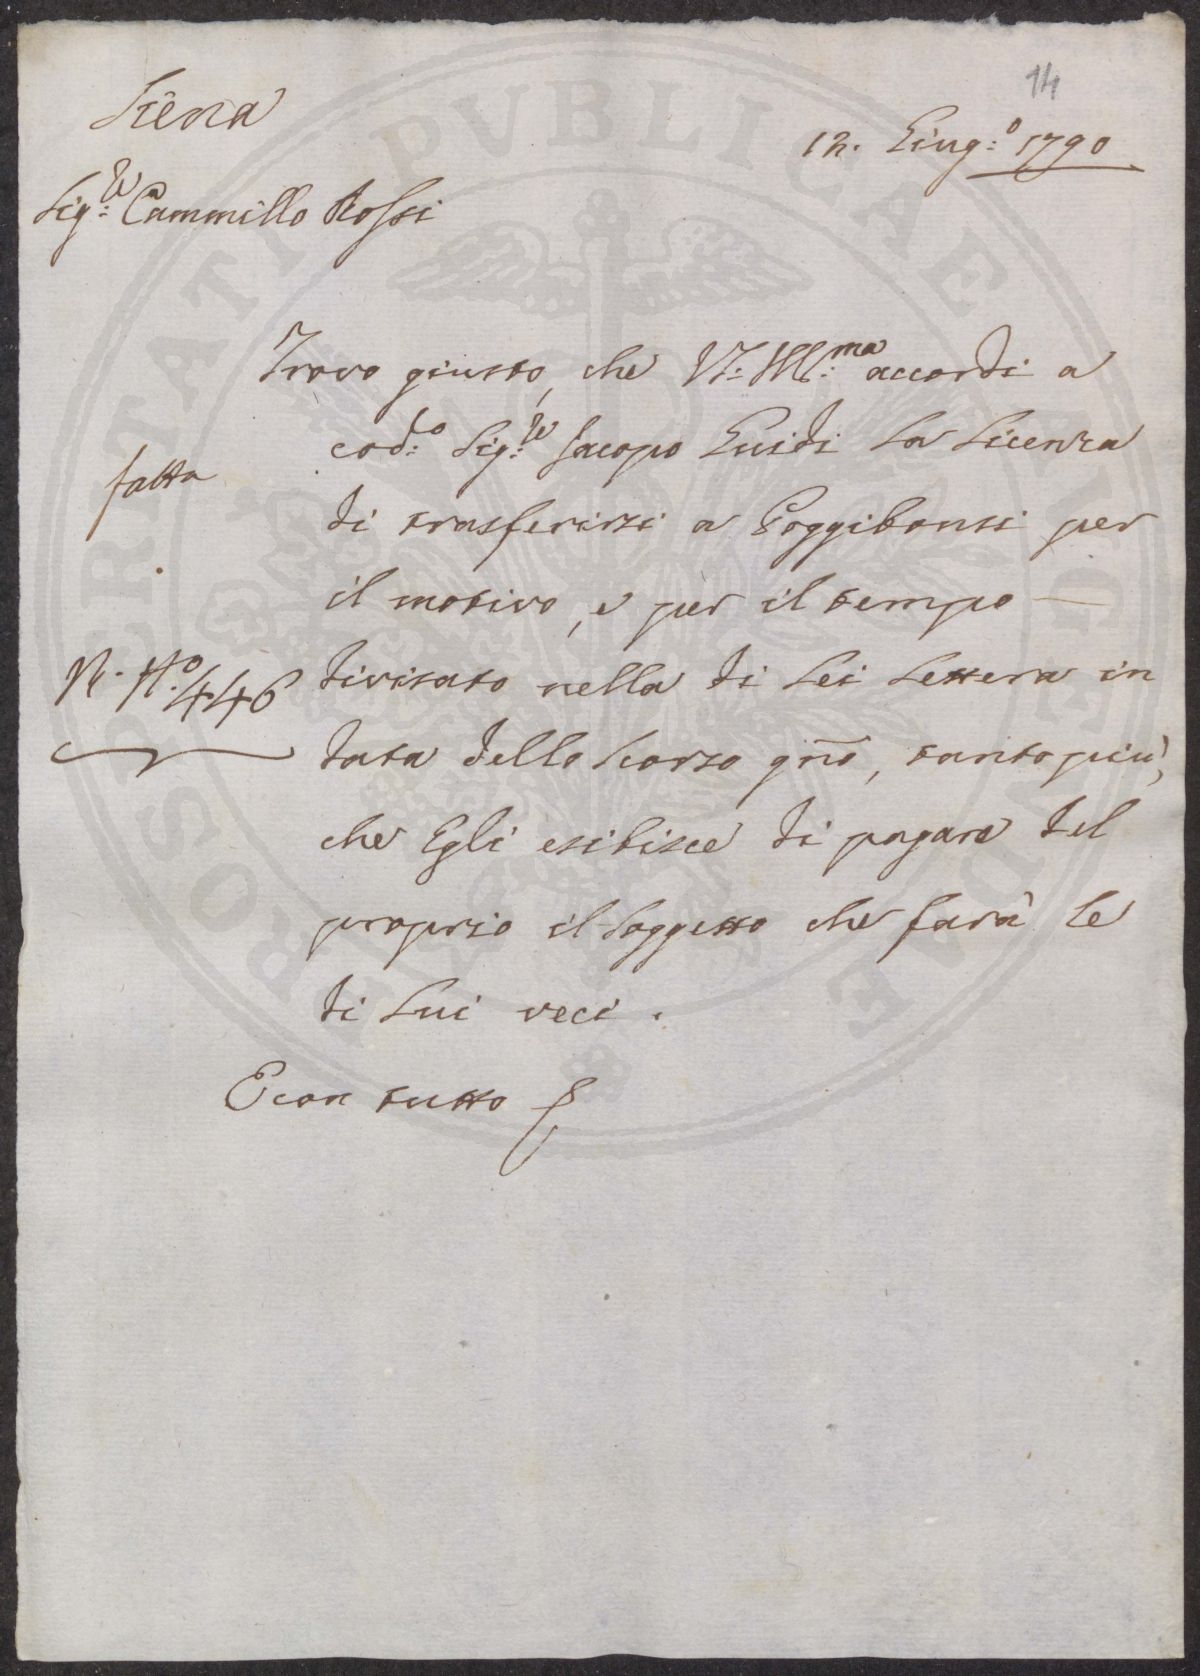 14
Siena
12. Giug:o 1790
Sig:re Cammillo Rossi
Trovo giusto, che VS: Ill:ma accordi a
cod:o Sig:re Jacopo Guidi la Licenza
fatta
di trasferirsi a Poggibonsi per
il motivo, e per il tempo —
N. N.o 446
divisato nella di Lei Lettera in
data dello scorso gno, tanto più,
che Egli esibisce di pagare del
proprio il soggetto che farà le
di Lui veci.
E con tutto
PROSPERITATI PVBLICAE AVGENDAE